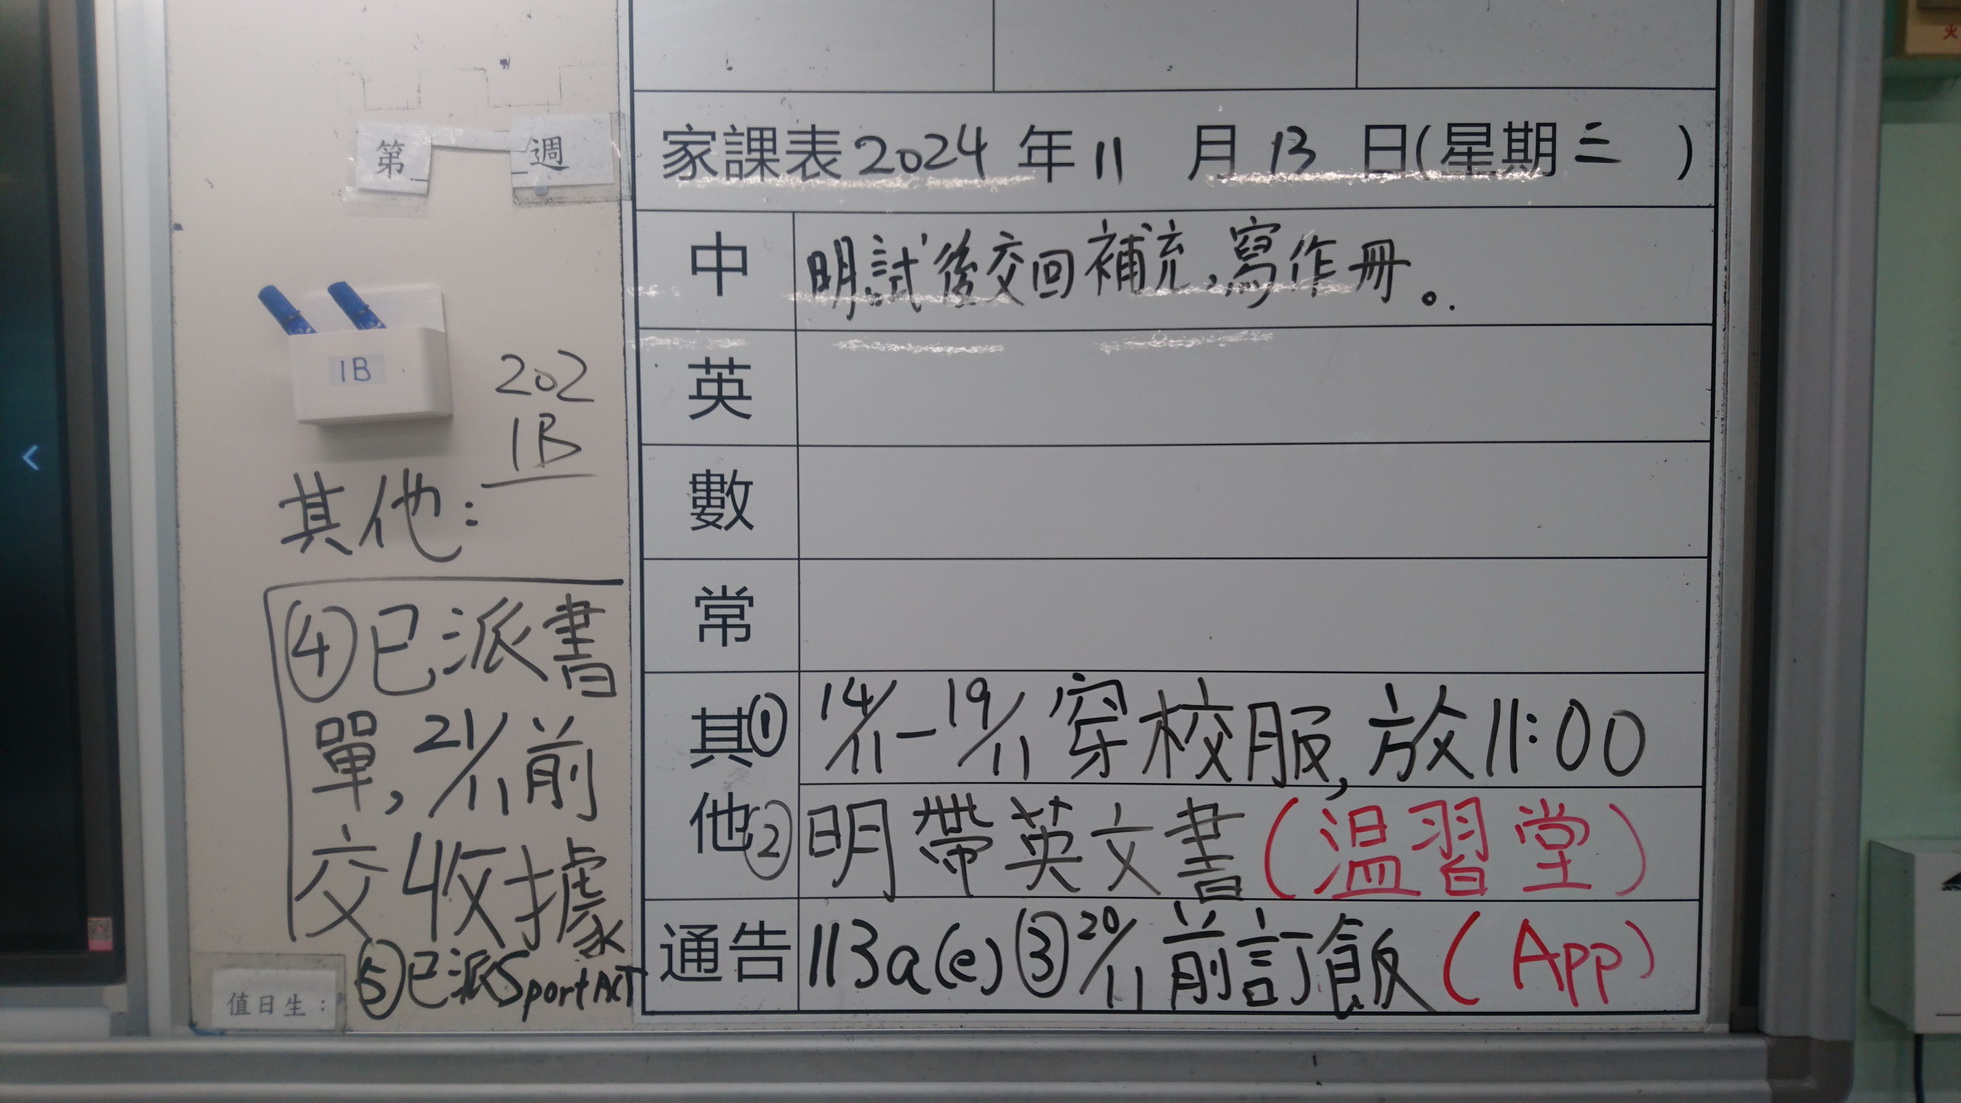 第_ _週
1B
202
1B
其他：
④已派書
單, 21/11前
交收據
⑤已派SportACT
值日生：
家課表2024年11月13日(星期三)
中 明試後交回補充,寫作冊。
英
數
常
其他 ①14/11-19/11穿校服,放11:00
②明帶英文書(温習堂)
通告 113a(e) ③20/11前訂飯(App)